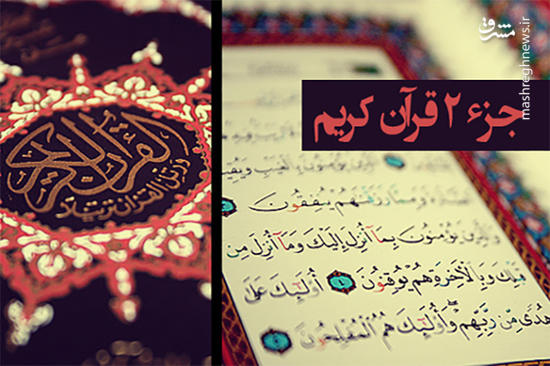 مشرق
mashreghnews.ir
جزء ۲ قرآن کریم
القرآن الكريم
ورتل القرآن ترتيلا
وَمِمَّا رَزَقْنَاهُمْ يُنفِقُونَ
وَالَّذِينَ يُؤْمِنُونَ بِمَا أُنزِلَ إِلَيْكَ وَمَا أُنزِلَ مِن
قَبْلِكَ وَبِالْآخِرَةِ هُمْ يُوقِنُونَ ٤ أُولَٰئِكَ عَلَىٰ
هُدًى مِّن رَّبِّهِمْ وَأُولَٰئِكَ هُمُ الْمُفْلِحُونَ ٥